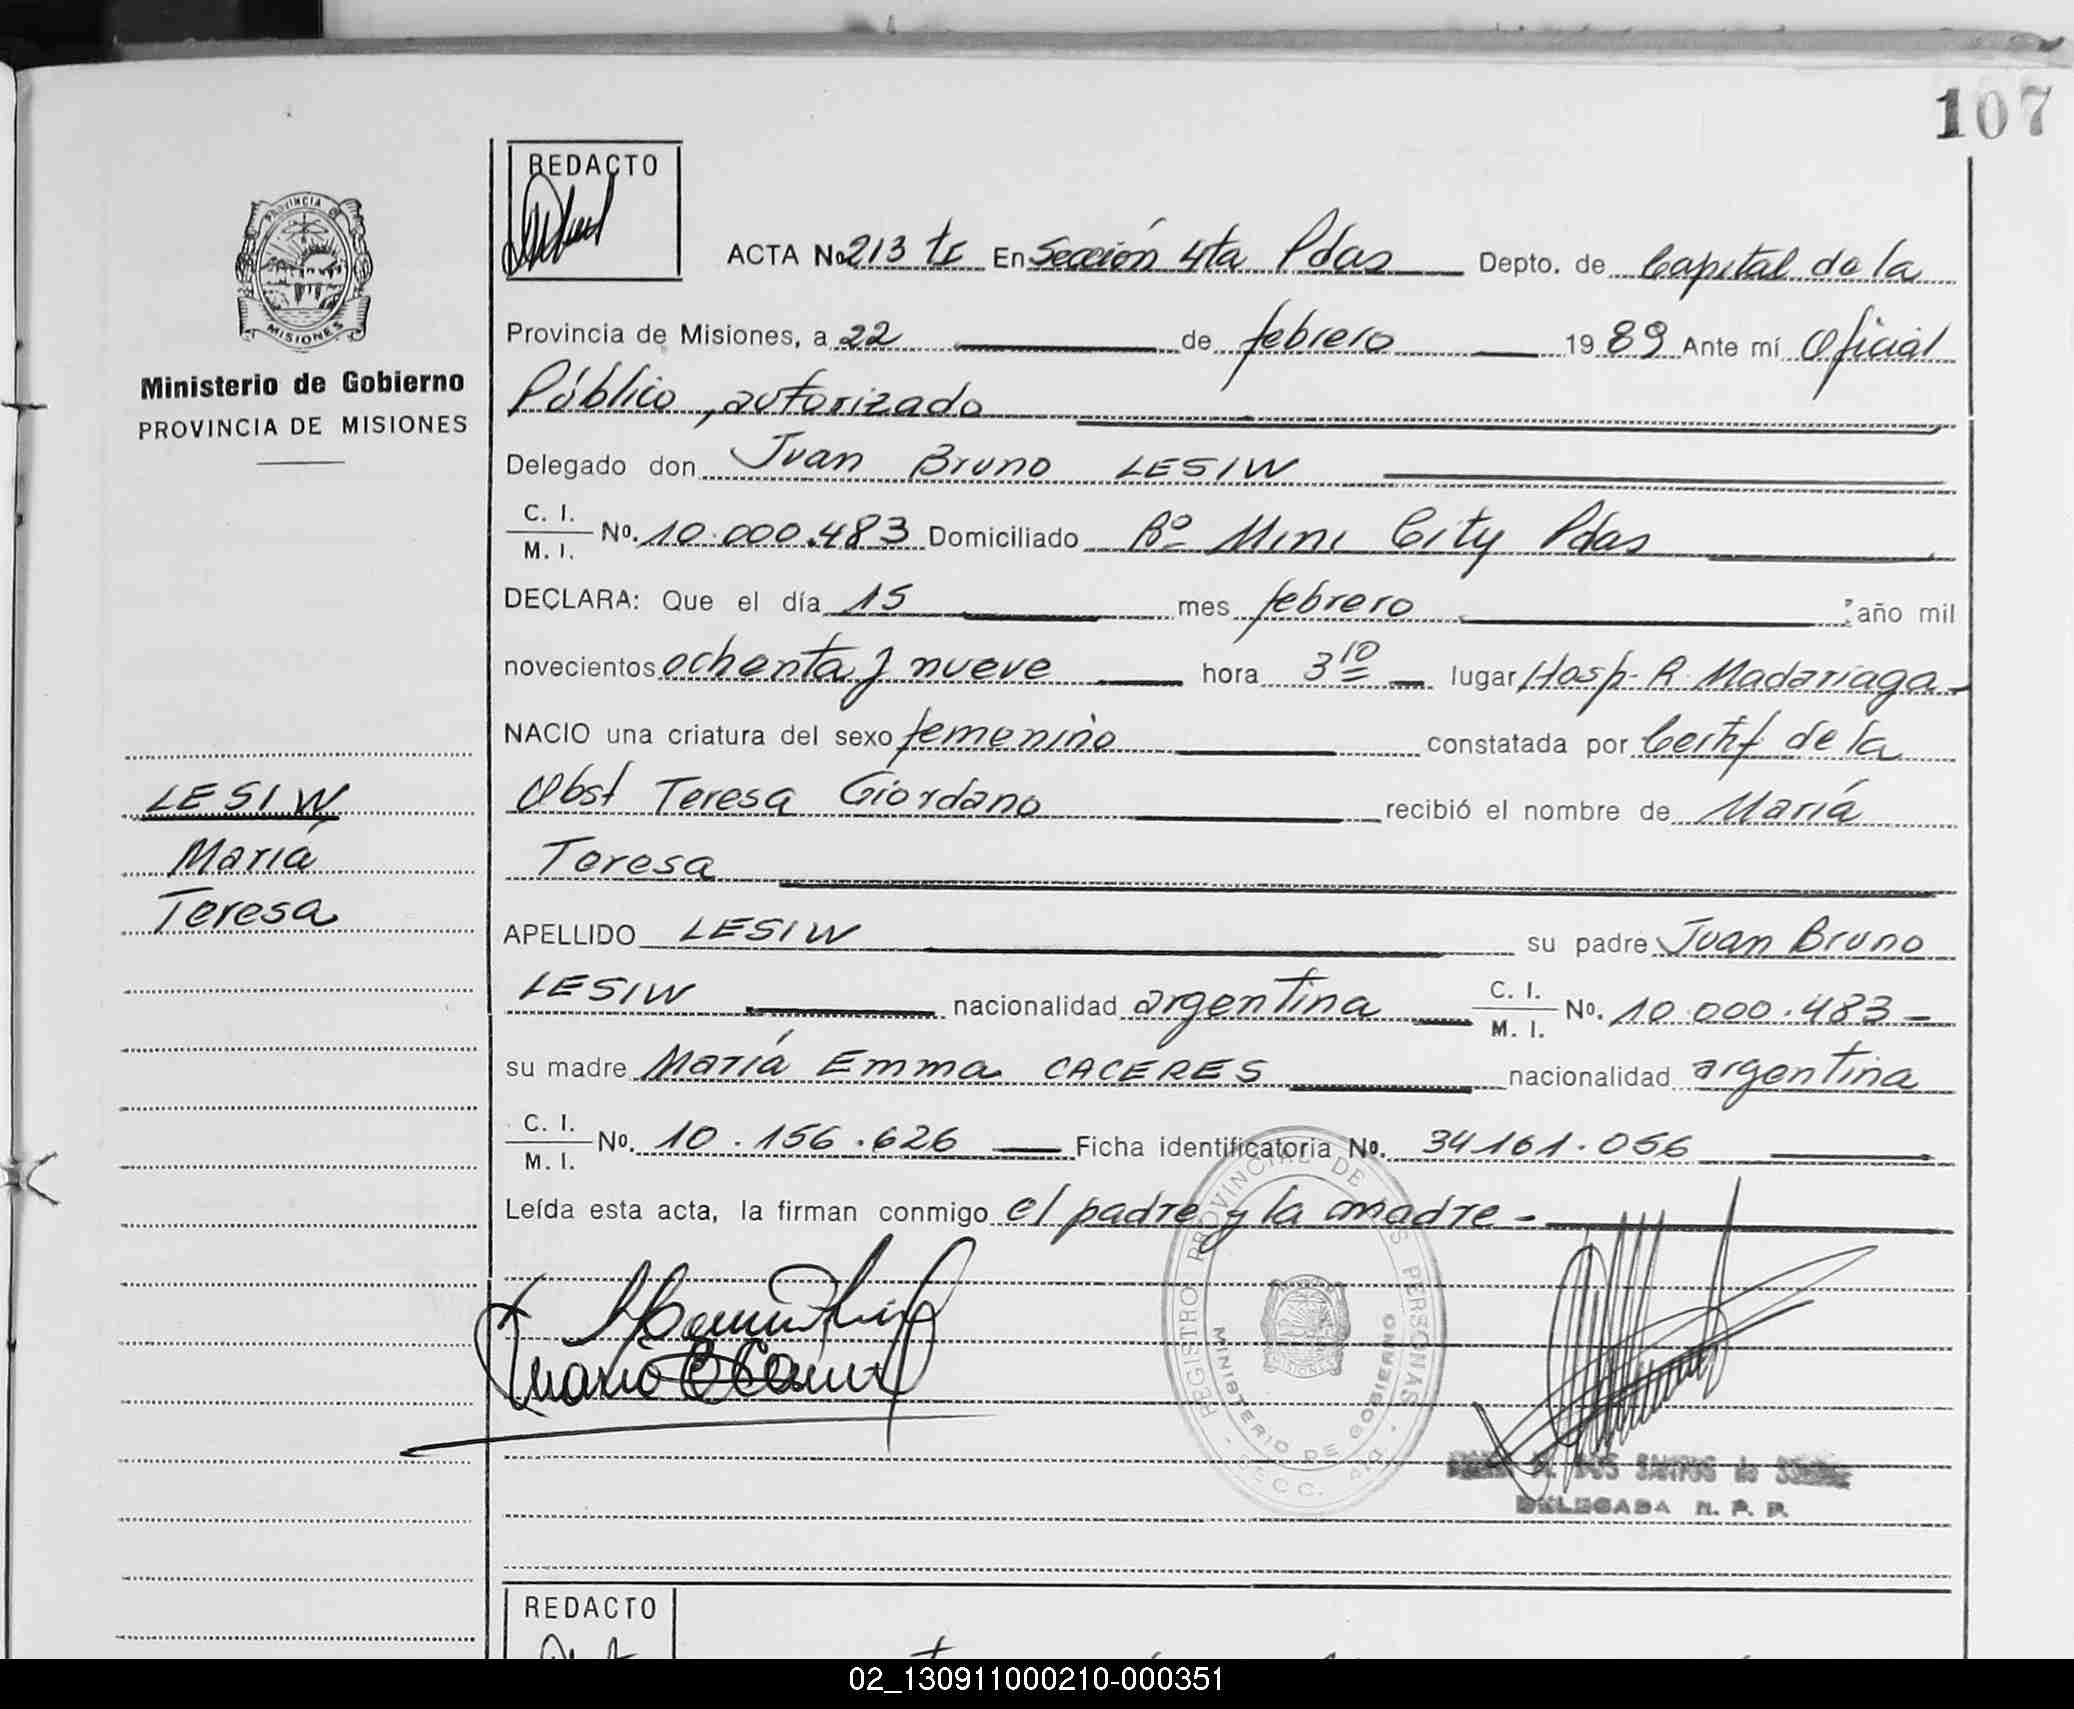 107
REDACTO
PROVINCIA DE
MISIONES
Ministerio de Gobierno
PROVINCIA DE MISIONES
LESIW
María
Teresa
ACTA No. 213 tc En Sección 4ta Pdas Depto. de Capital de la
Provincia de Misiones, a 22 de febrero 1989 Ante mí Oficial
Público, autorizado
Delegado don Juan Bruno LESIW
C. I.
M. I. No. 10.000.483 Domiciliado Bº Mini City Pdas
DECLARA: Que el día 15 mes febrero año mil
novecientos ochenta y nueve hora 3 10 lugar Hosp. R. Madariaga -
NACIO una criatura del sexo femenino constatada por Certif de la
Obst Teresa Giordano recibió el nombre de María
Teresa
APELLIDO LESIW su padre Juan Bruno
LESIW nacionalidad argentina C. I.
M. I. No. 10.000.483 -
su madre María Emma CACERES nacionalidad argentina
C. I.
M. I. No. 10.156.626 Ficha identificatoria No. 34161.056
Leída esta acta, la firman conmigo el padre y la madre -
REGISTRO PROVINCIAL DE LAS PERSONAS
MINISTERIO DE GOBIERNO
SECC. 4ta
DOS SANTOS de
DELEGADA R. P. P.
REDACTO
02_130911000210-000351